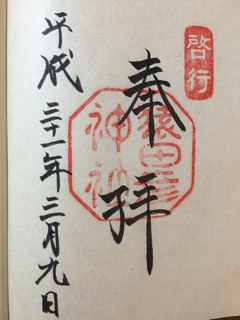 啓行
奉拝
猿田彦
神社
平成三十一年三月九日